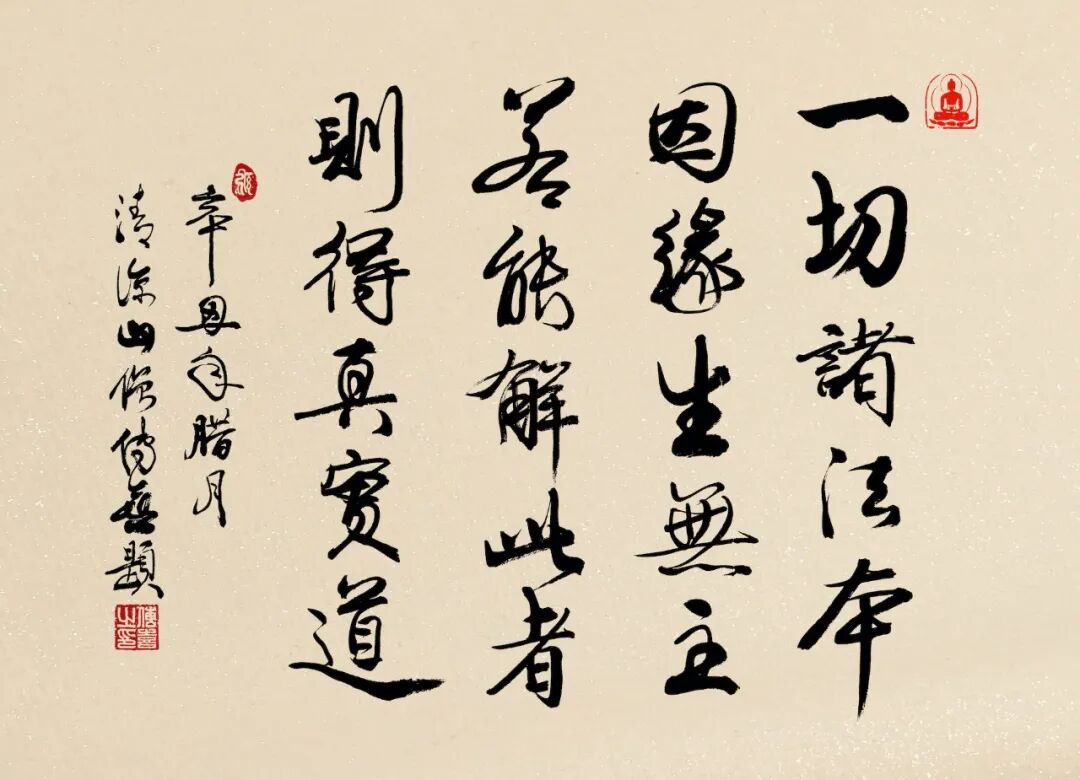 一切諸法本
因緣生無主
若能解此者
則得真實道
辛丑年腊月
清凉山僧傳喜題
傳喜之印